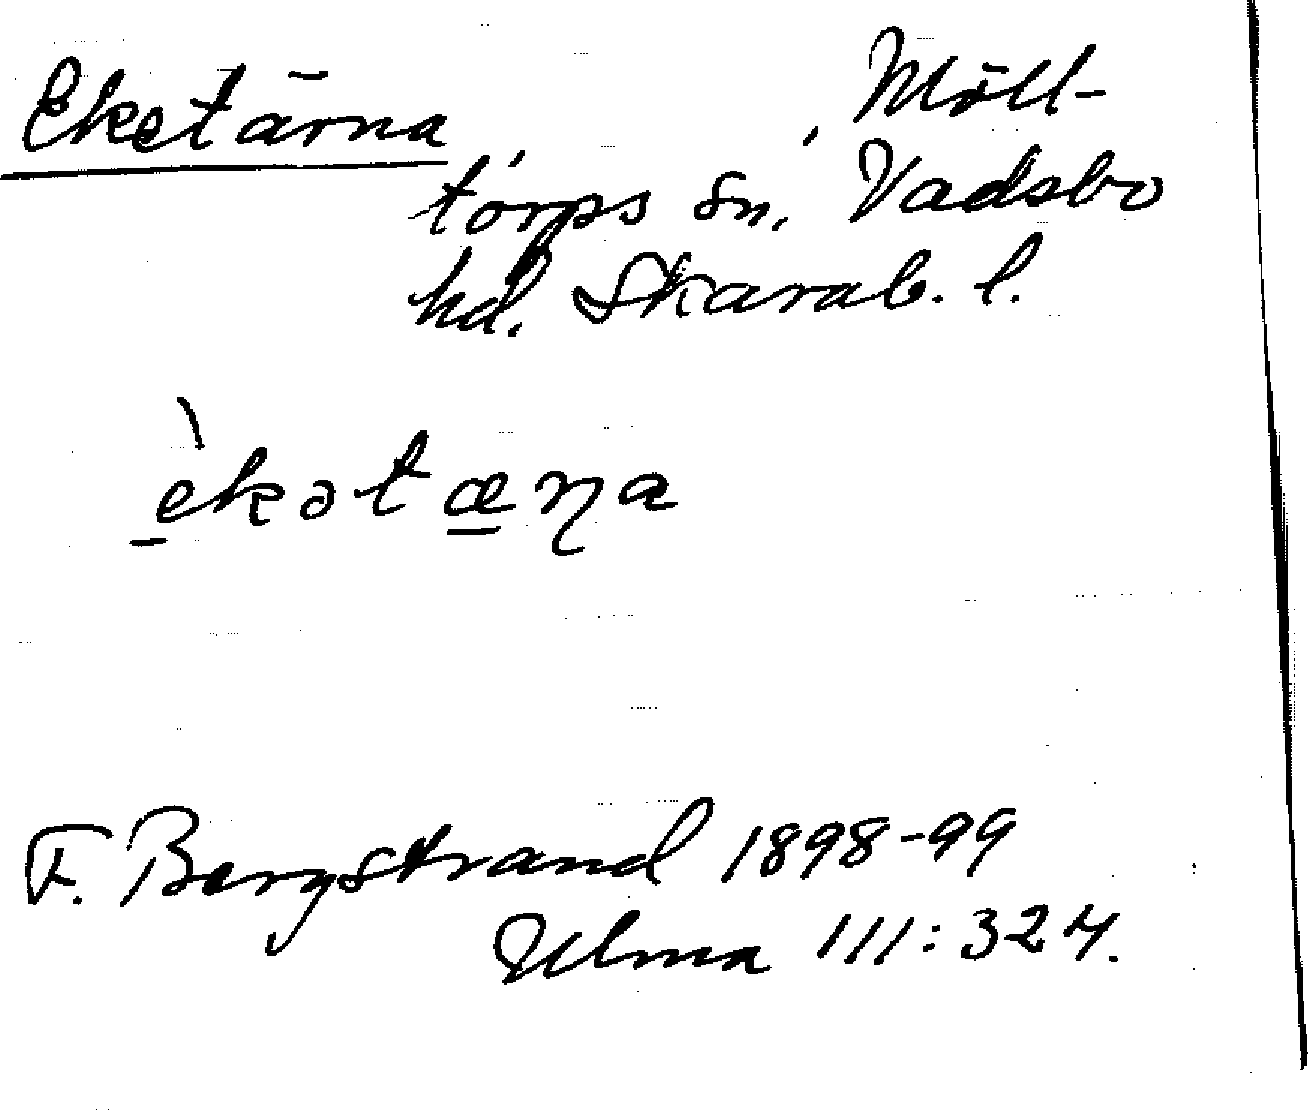 Eketärna
Möll-
torps sn, Vadsbo
hd. Skarab. l.
èkətæɳa
F. Bergstrand 1898-99
Ulma 111:324.